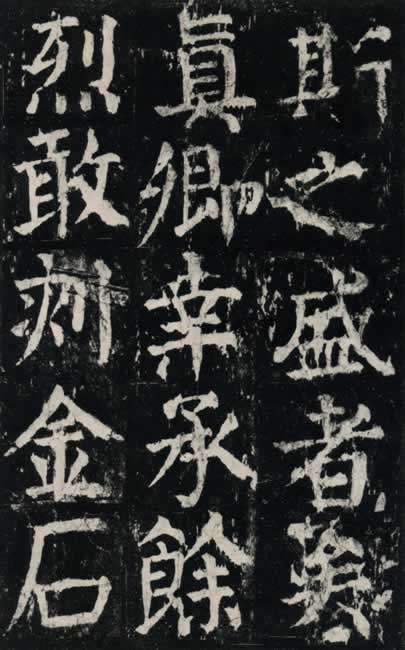 斯之盛者矣
眞卿幸承餘
烈敢刻金石